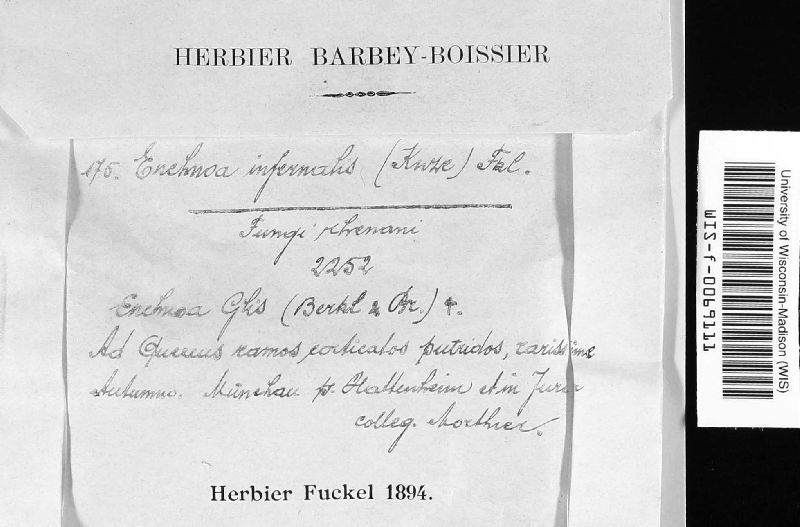 HERBIER BARBEY-BOISSIER
175. Enchnoa infernalis (Kunze) Fkl.
Fungi rhenani
2252
Enchnoa Glis (Berkl & Br.) f.
Ad Quercus ramos corticatos putridos, rarissime
Autumno. Münchau pr. Hattenheim et in Jura
colleg. Morthier.
Herbier Fuckel 1894.
University of Wisconsin-Madison (WIS)
WIS-f-0069111